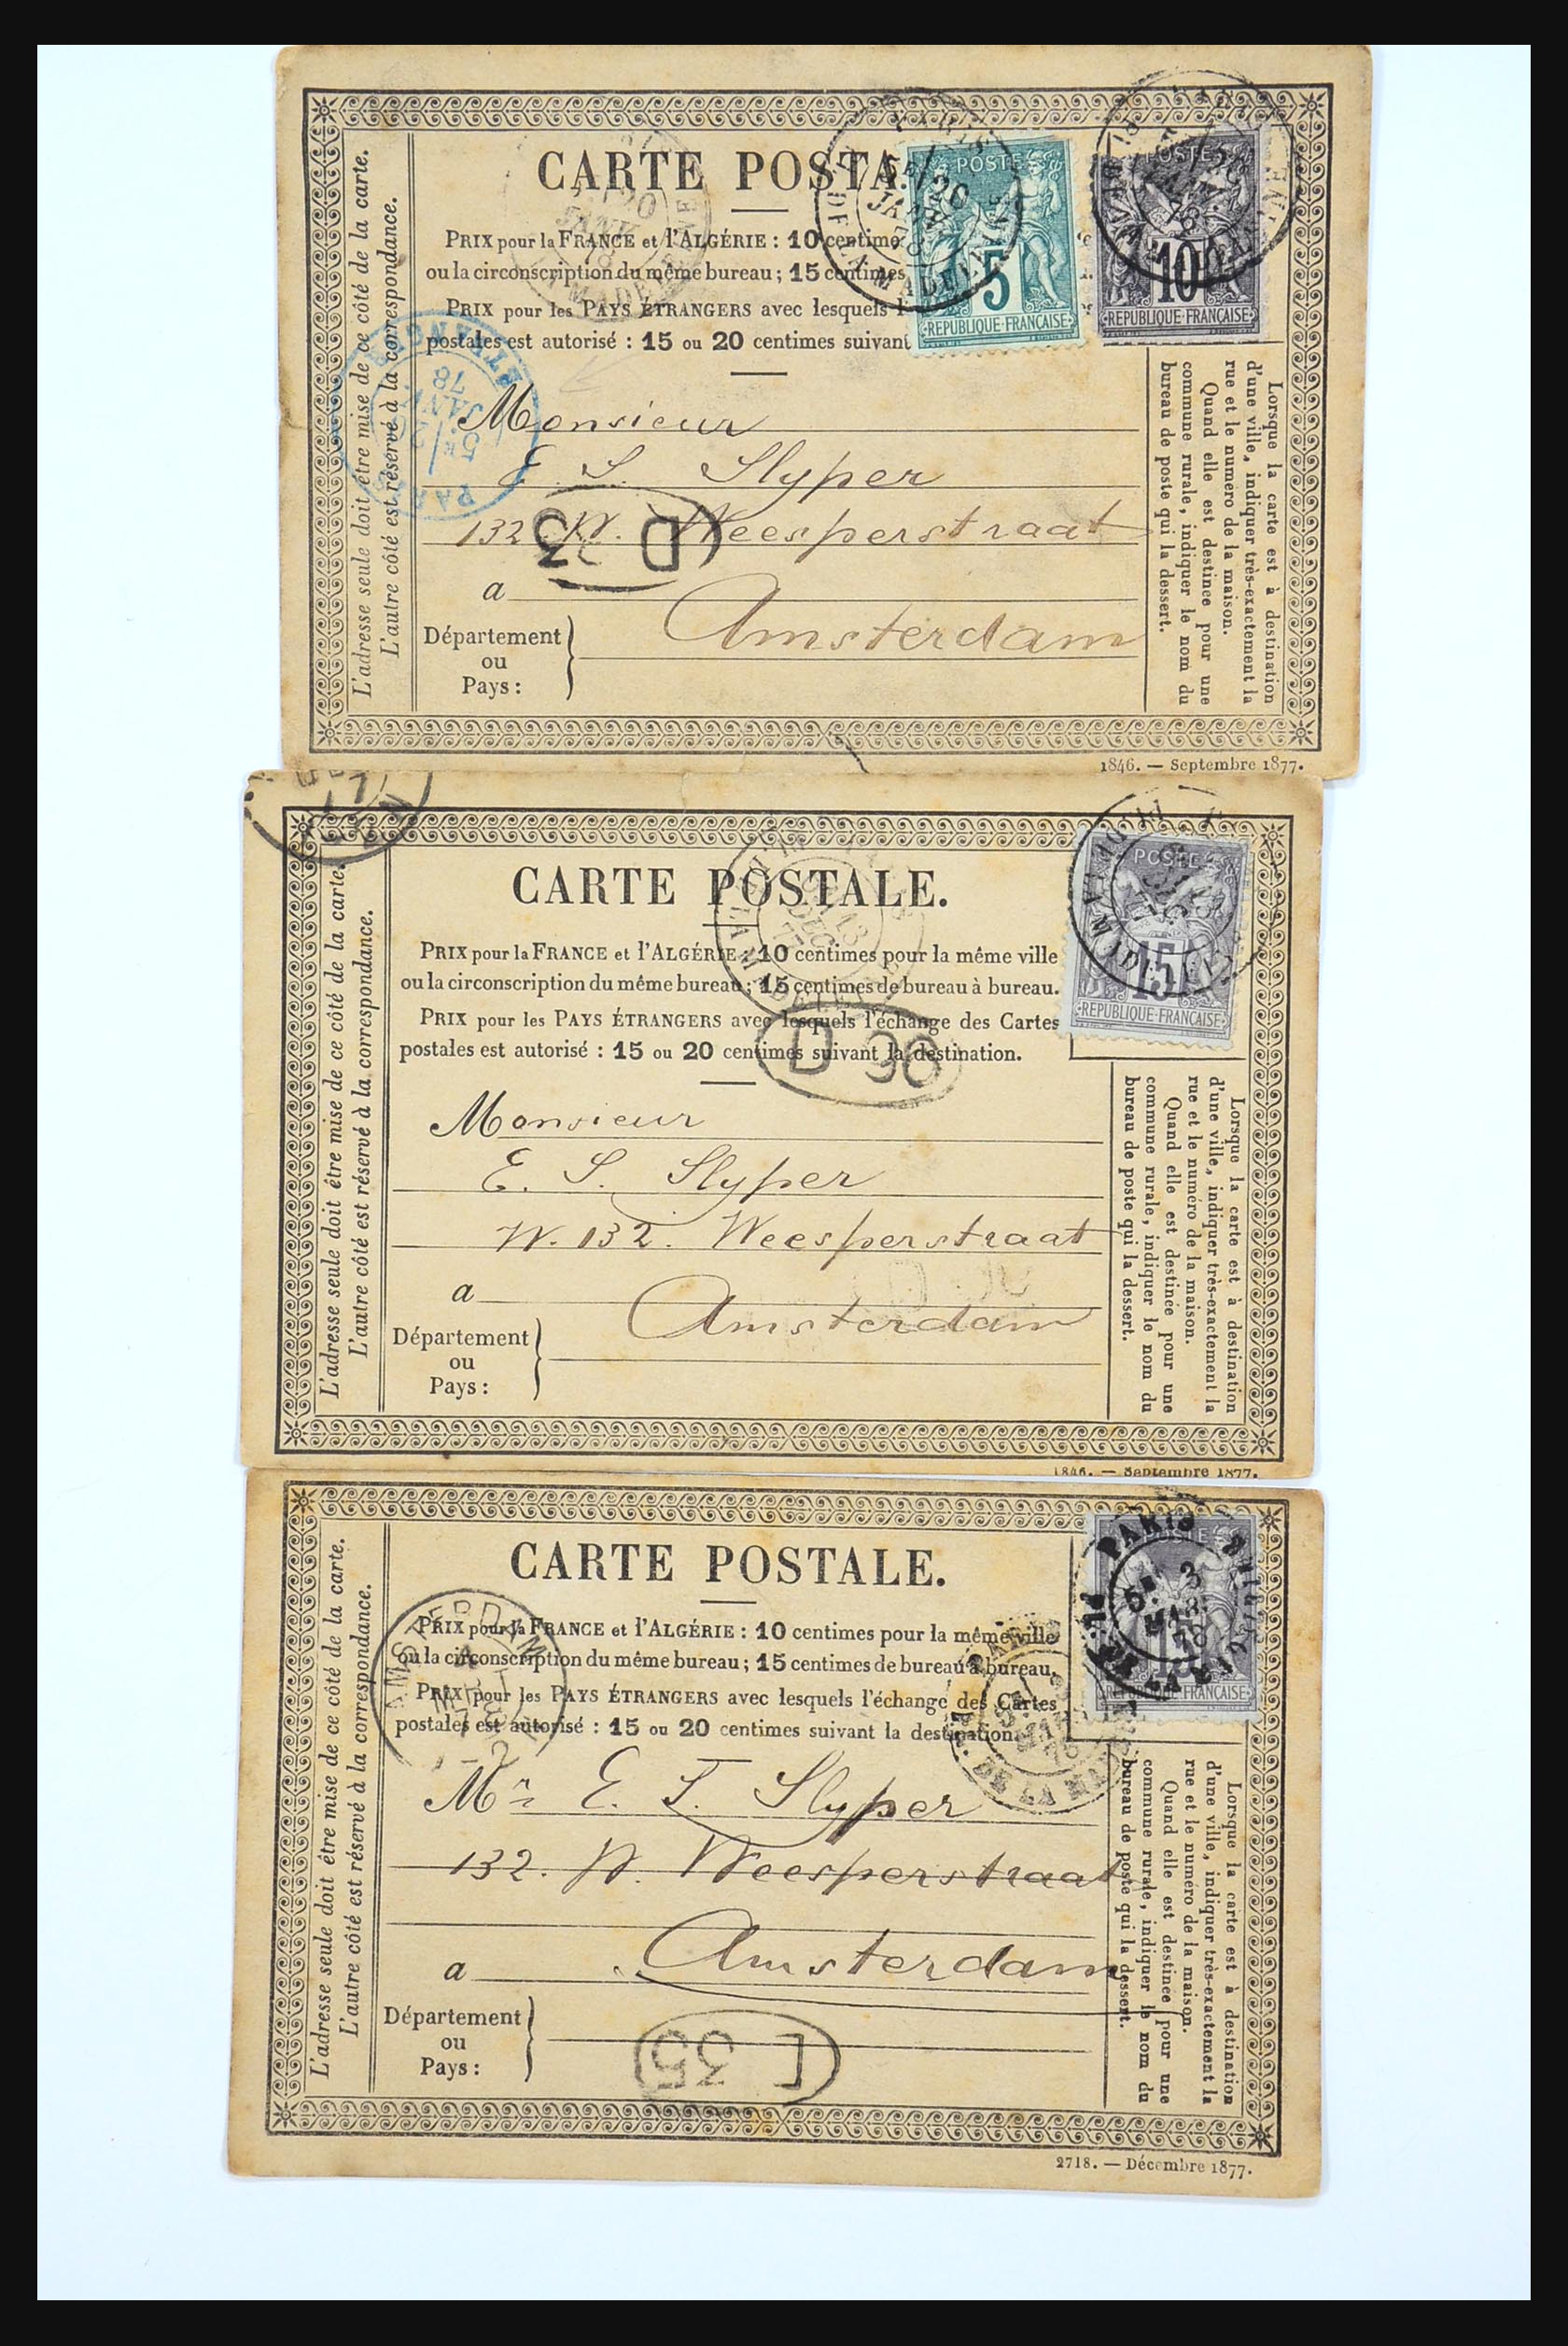 CARTE POSTA
PRIX pour la FRANCE et l'ALGÉRIE : 10 centime
ou la circonscription du même bureau ; 15 centimes
PRIX pour les PAYS ÉTRANGERS avec lesquels l'
postales est autorisé : 15 ou 20 centimes suivant
POSTE
5
REPUBLIQUE FRANÇAISE
POSTE
10
REPUBLIQUE FRANÇAISE
L'adresse seule doit être mise de ce côté de la carte.
L'autre côté est réservé à la correspondance.
Monsieur
E. S. Slyper
132 W. Weesperstraat
D
a
Amsterdam
Département
ou
Pays :
Lorsque la carte est à destination
d'une ville, indiquer très-exactement la
rue et le numéro de la maison.
Quand elle est destinée pour une
commune rurale, indiquer le nom du
bureau de poste qui la dessert.
1846. — Septembre 1877.
CARTE POSTALE.
PRIX pour la FRANCE et l'ALGÉRIE : 10 centimes pour la même ville
ou la circonscription du même bureau ; 15 centimes de bureau à bureau.
PRIX pour les PAYS ÉTRANGERS avec lesquels l'échange des Cartes
postales est autorisé : 15 ou 20 centimes suivant la destination.
POSTE
15
REPUBLIQUE FRANÇAISE
D 96
L'adresse seule doit être mise de ce côté de la carte.
L'autre côté est réservé à la correspondance.
Monsieur
E. S. Slyper
W. 132. Weesperstraat
a
Amsterdam
Département
ou
Pays :
Lorsque la carte est à destination
d'une ville, indiquer très-exactement la
rue et le numéro de la maison.
Quand elle est destinée pour une
commune rurale, indiquer le nom du
bureau de poste qui la dessert.
1846. — Septembre 1877.
CARTE POSTALE.
PRIX pour la FRANCE et l'ALGÉRIE : 10 centimes pour la même ville
ou la circonscription du même bureau ; 15 centimes de bureau à bureau.
PRIX pour les PAYS ÉTRANGERS avec lesquels l'échange des Cartes
postales est autorisé : 15 ou 20 centimes suivant la destination.
PARIS
15
REPUBLIQUE FRANÇAISE
AMSTERDAM
L'adresse seule doit être mise de ce côté de la carte.
L'autre côté est réservé à la correspondance.
Mr E. S. Slyper
132. W. Weesperstraat
a
Amsterdam
Département
ou
Pays :
35
Lorsque la carte est à destination
d'une ville, indiquer très-exactement la
rue et le numéro de la maison.
Quand elle est destinée pour une
commune rurale, indiquer le nom du
bureau de poste qui la dessert.
2718. — Décembre 1877.